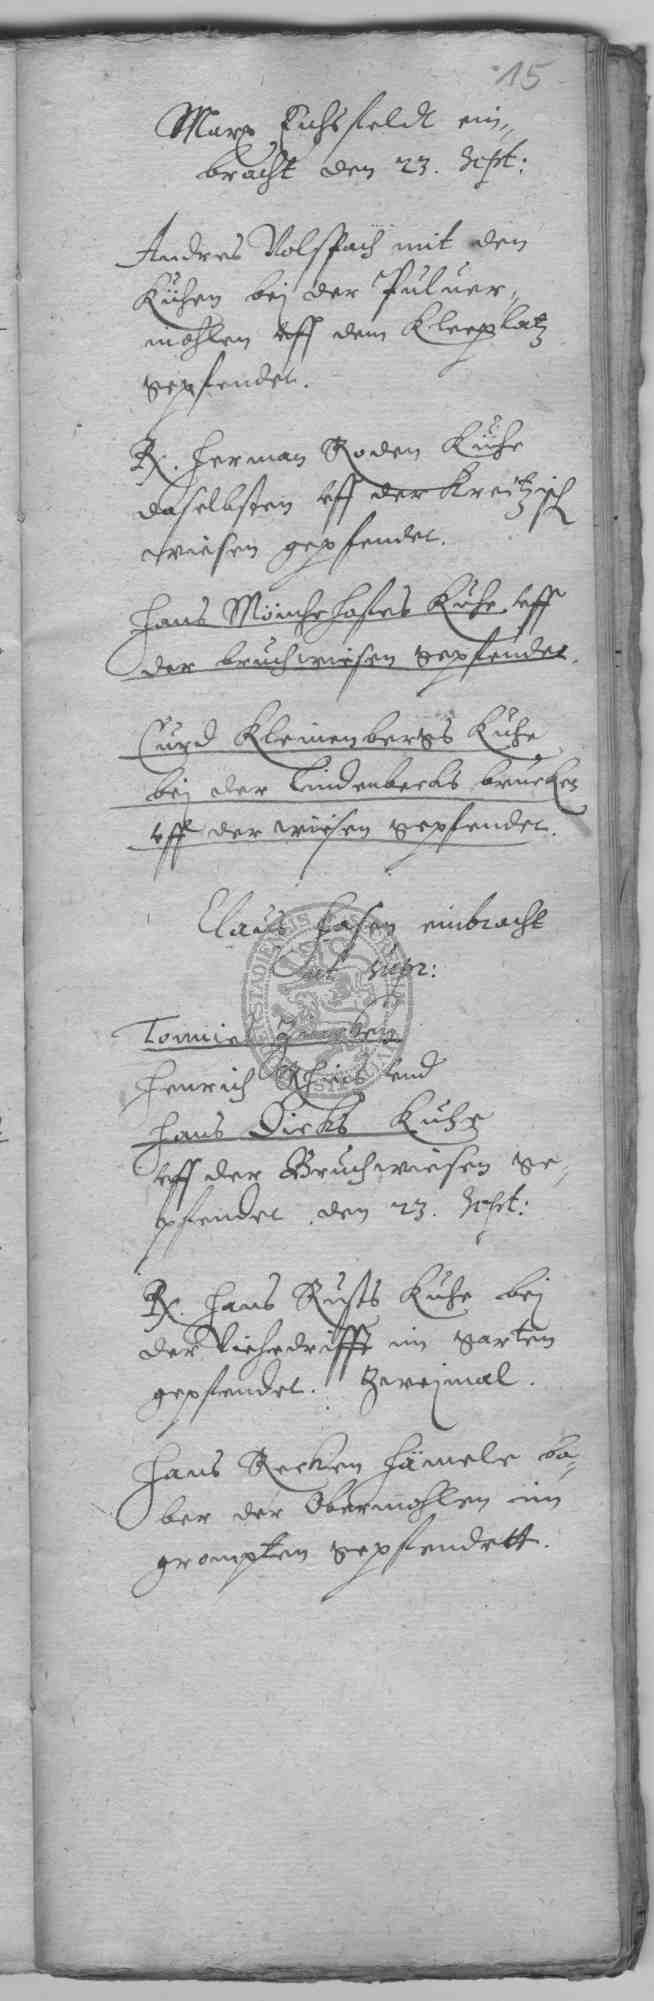 15
Marx Eichsfeldt ein„
bracht den 23. Sept:
Andres Volspach mit den
Kühen bej der Puluer„
mohlen vff dem Kleeplatz
gepfendet.
R. Herman Roden Kühe
daselbsten vff der Kreitzisch
wiesen gepfendet.
Hans Mönchehofes Kühe vff
der bruchwiesen gepfendet.
Curd Kleinenbergs Kuhe
bej der Lindenbecks brucken
vff der wiesen gepfendet.
Claus Hasen einbracht
Tonnies
Henrich vnd
Hans Dirks Kuhe
vff der Bruchwiesen ge„
pfendet den 23. Sept:
R. Hans Rusts Kuhe bej
der Viehedrifft im garten
gepfendet. Zweimal.
Hans Recken Hämele bo„
ber der Obermohlen im
grompten gepfendett.